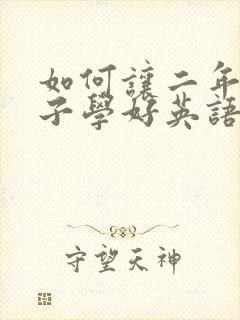 如何讓二年
子學好英語
守望天神